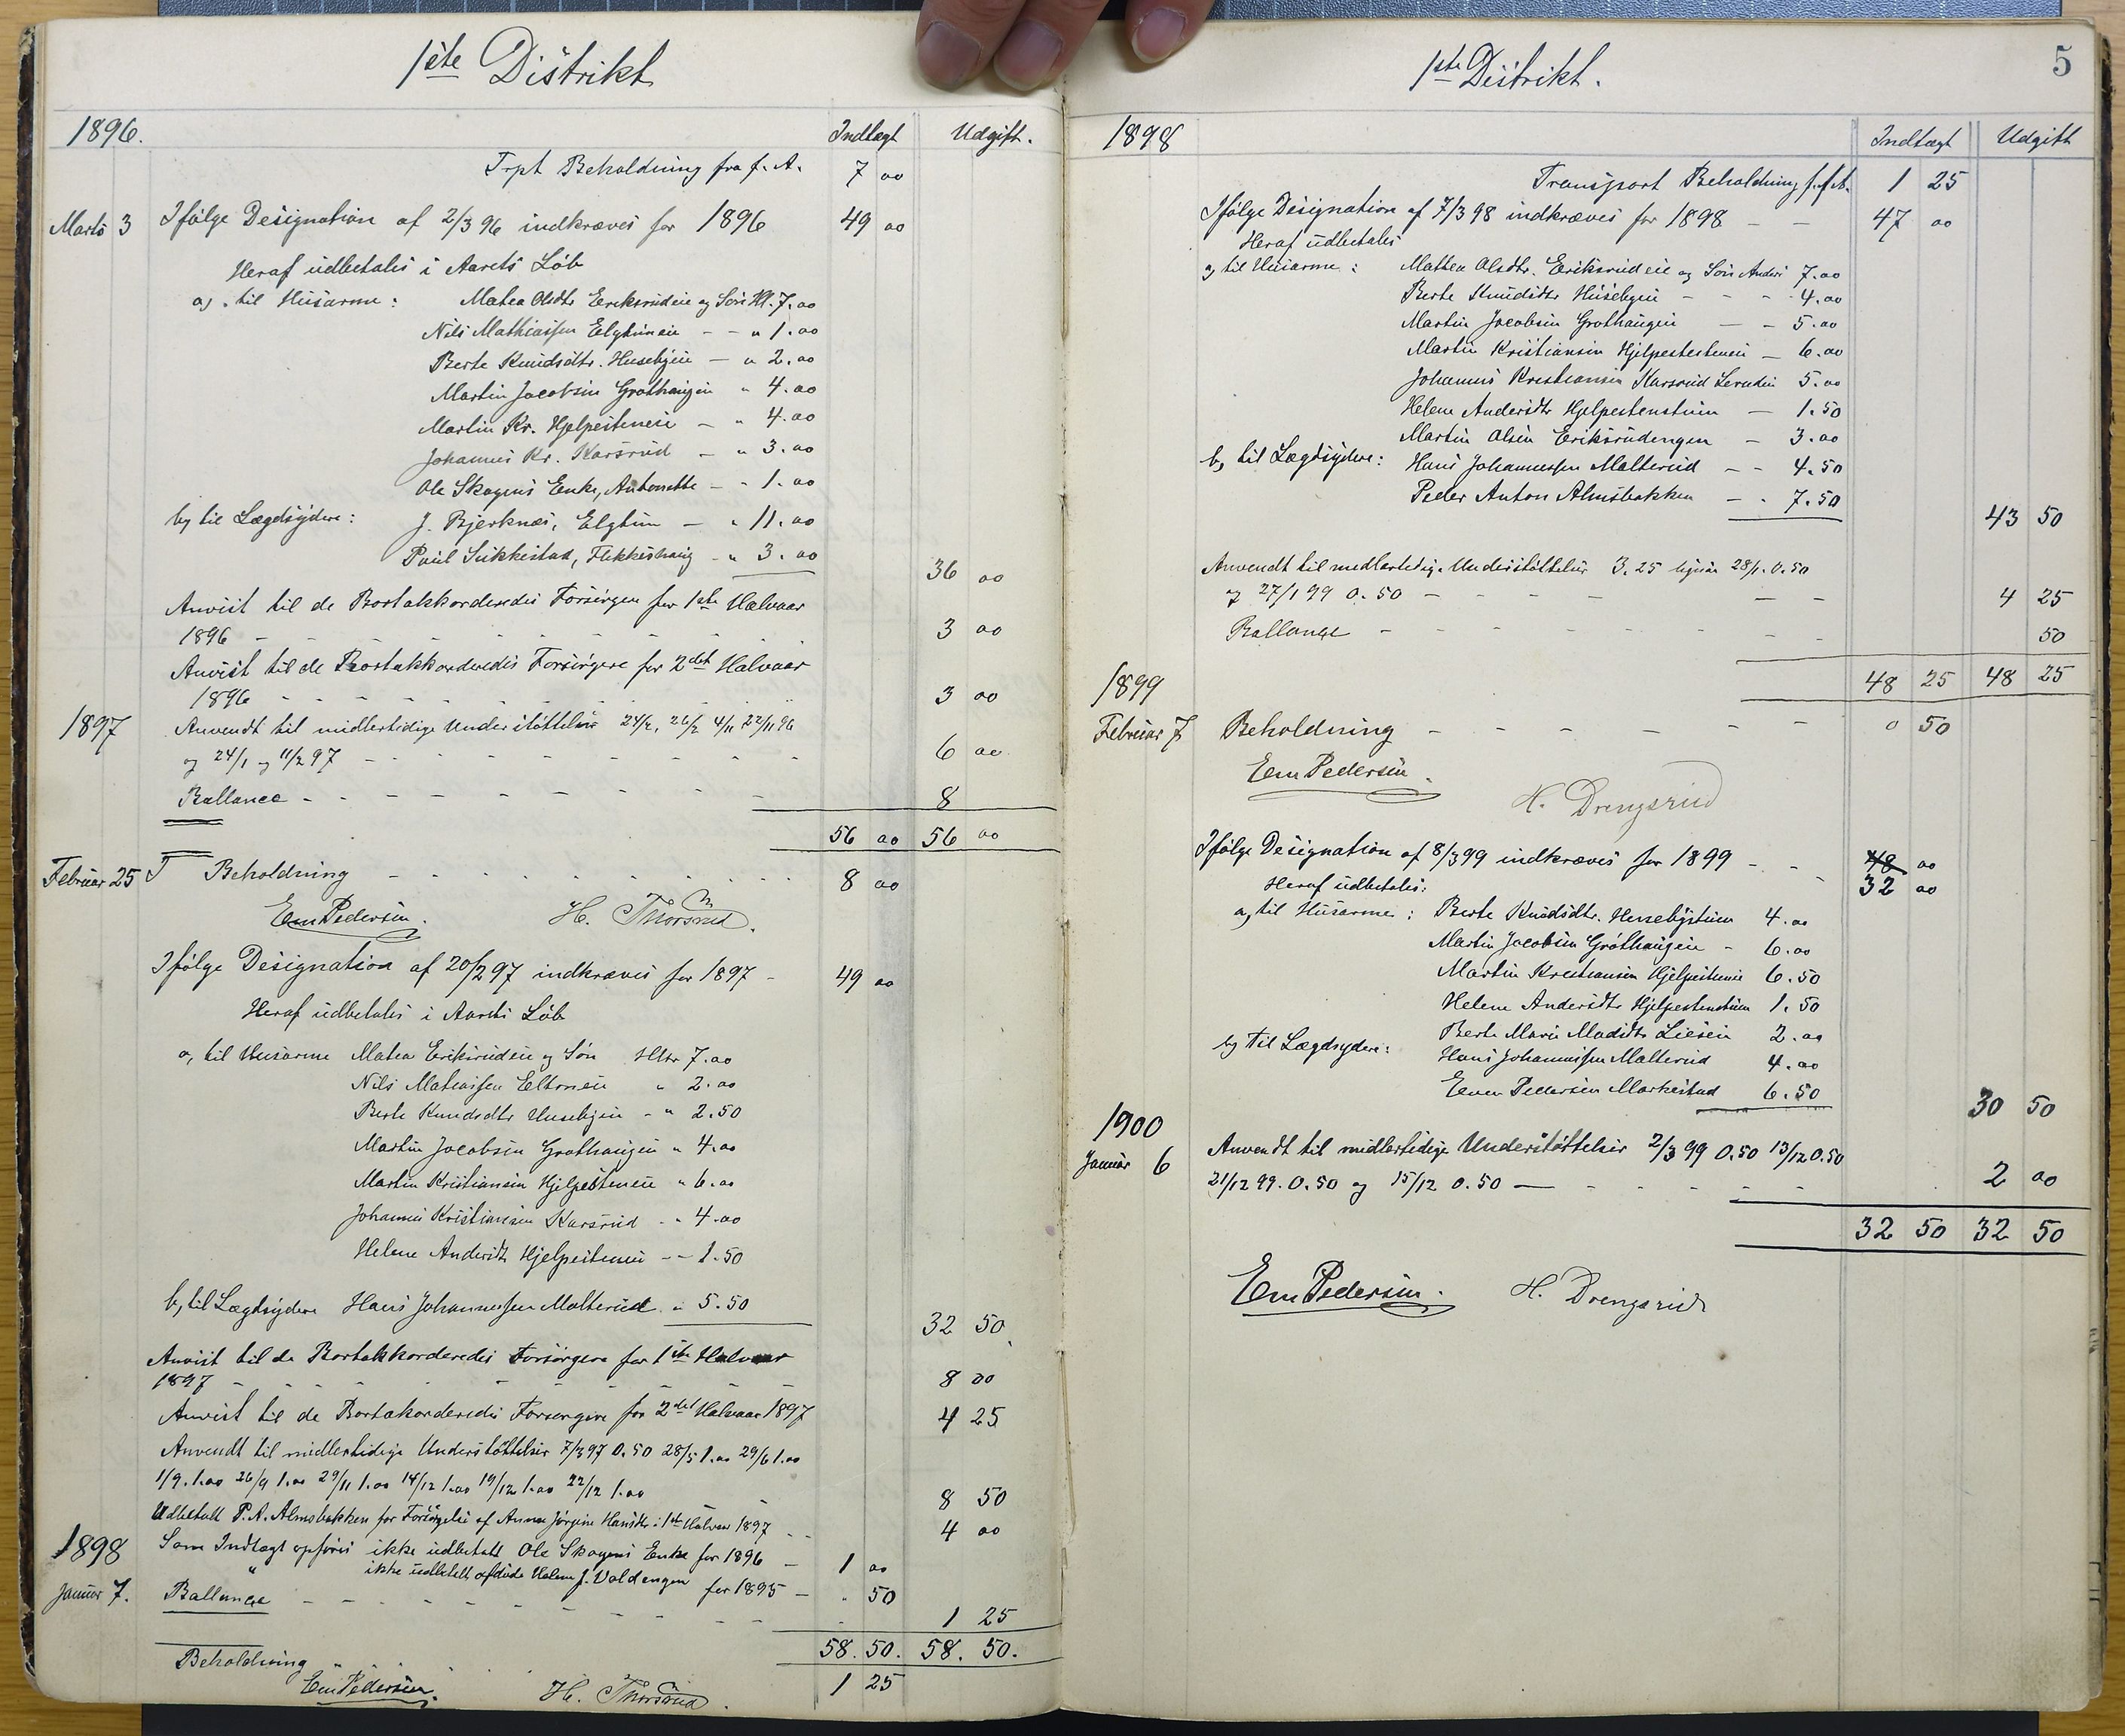 1ste Distrikt
1896. Indtægt Udgift.
Trpt Beholdning fra f. A. 7 00
Marts 3 Ifølge Designation af 2/3 96 indkræves for 1896 49 00
Heraf udbetales i Aarets Løb
a, til Husarme: Matea Olsdtr Eeriksrudeie og Søn Kr. 7.00
Nils Mathiassen Elgtuneie - - " 1.00
Berte Knudsdtr. Husebyeie - " 2.00
Martin Jacobsen Grøthaugen " 4.00
Martin Kr. Hjelpesteneie - " 4.00
Johannes Kr. Karsrud - " 3.00
Ole Skogens Enke, Antonette - " 1.00
b, til Lægdsydere: J. Bjerknæs, Elgtun - " 11.00
Paul Sukkestad, Flikkeshaug - " 3.00
36 00
Anvist til de Bortakkorderedes Forsørgere for 1ste Halvaar
1896 - - - 3 00
Anvist til de Bortakkorderedes Forsørgere for 2det Halvaar
1896 - - - 3 00
1897 Anvendt til midlertidige Understøttelser 24/2, 26/2 4/11 22/11 96
og 24/1 og 11/2 97 - - - 6 00
Ballance - - - 8
56 00 56 00
Februar 25 Beholdning - - - 8 00
Em Pedersen. H. Thorsrud.
Ifølge Designation af 20/2 97 indkræves for 1897 - 49 00
Heraf udbetales i Aarets Løb
a, til Husarme Matea Eriksrudeie og Søn 7.00
Nils Mateassen Eltoneie " 2.00
Berte Knudsdtr Husebyeie - " 2.50
Martin Jacobsen Grøthaugen " 4.00
Martin Kristiansen Hjelpesteneie " 6.00
Johannes Kristiansen Karsrud - " 4.00
Helene Andersdtr Hjelpesteneie - - 1.50
b, til Lægdsydere Hans Johannessen Malterud " 5.50
32 50
Anvist til de Bortakkorderedes Forsørgere for 1ste Halvaar
1897 - - - 8 00
Anvist til de Bortakorderedes Forsørgere for 2det Halvaar 1897 4 25
Anvendt til midlertidige Understøttelser 7/3 97 0.50 28/5 1.00 29/6 1.00
1/9. 1.00 26/9 1.00 29/11 1.00 14/12 1.00 19/12 1.00 22/12 1.00 8 50
Udbetalt P. A. Almsbakken for Forsørgelse af Anna Jørgine Hansdtr i 1ste Halvaar 1897 - - 4 00
1898 Som Indtægt opføres ikke udbetalt Ole Skogens Enke for 1896 - 1 00
" ikke udbetalt afdøde Helene J. Voldengen for 1895 - " 50
Januar 7. Ballance - - - 1 25
58.50. 58. 50.
Beholdning 1 25
Em Pedersen. H. Thorsrud.
5
1ste Distrikt.
1898 Indtægt Udgift
Transport Beholdning f. f. A. 1 25
Ifølge Designation af 7/3 98 indkræves for 1898 - - 47 00
Heraf udbetales
a, til Husarme: Mathea Olsdtr. Eriksrudeie og Søn Anders 7.00
Berte Knudsdtr Husebyeie - - - 4.00
Martin Jacobsen Grøthaugen - - 5.00
Martin Kristiansen Hjelpesteneie - 6.00
Johannes Kristiansen Karsrud 5.00
Helene Andersdtr Hjelpestenstuen - 1.50
Martin Olsen Eriksrudengen - 3.00
b, til Lægdsydere: Hans Johannessen Malterud - - 4.50
Peder Anton Almsbakken - - 7.50
43 50
Anvendt til midlertidige Understøttelser 3.25 28/1. 0.50
og 27/1 99 0.50 - - - 4 25
Ballance - - - 50
48 25 48 25
1899
Februar 7 Beholdning - - - 0 50
Em Pedersen. H. Drengsrud
Ifølge Designation af 8/3 99 indkræves for 1899 - - 48 00
32 00
Heraf udbetales:
a, til Husarme: Berte Knudsdtr. Husebystuen 4.00
Martin Jacobsen Grøthaugen - 6.00
Martin Kristiansen Hjelpesteneie 6.50
Helene Andersdtr Hjelpestenstuen 1.50
Berte Marie Madsdtr Lieseie 2.00
b, Til Lægdsydere: Hans Johannessen Malterud 4.00
Even Pedersen Markestad 6.50
30 50
1900
Januar 6 Anvendt til midlertidige Understøttelser 2/3 99 0.50 13/12 0.50
21/12 99. 0.50 og 15/12 0.50 - - - 2 00
32 50 32 50
Em Pedersen. H. Drengsrud